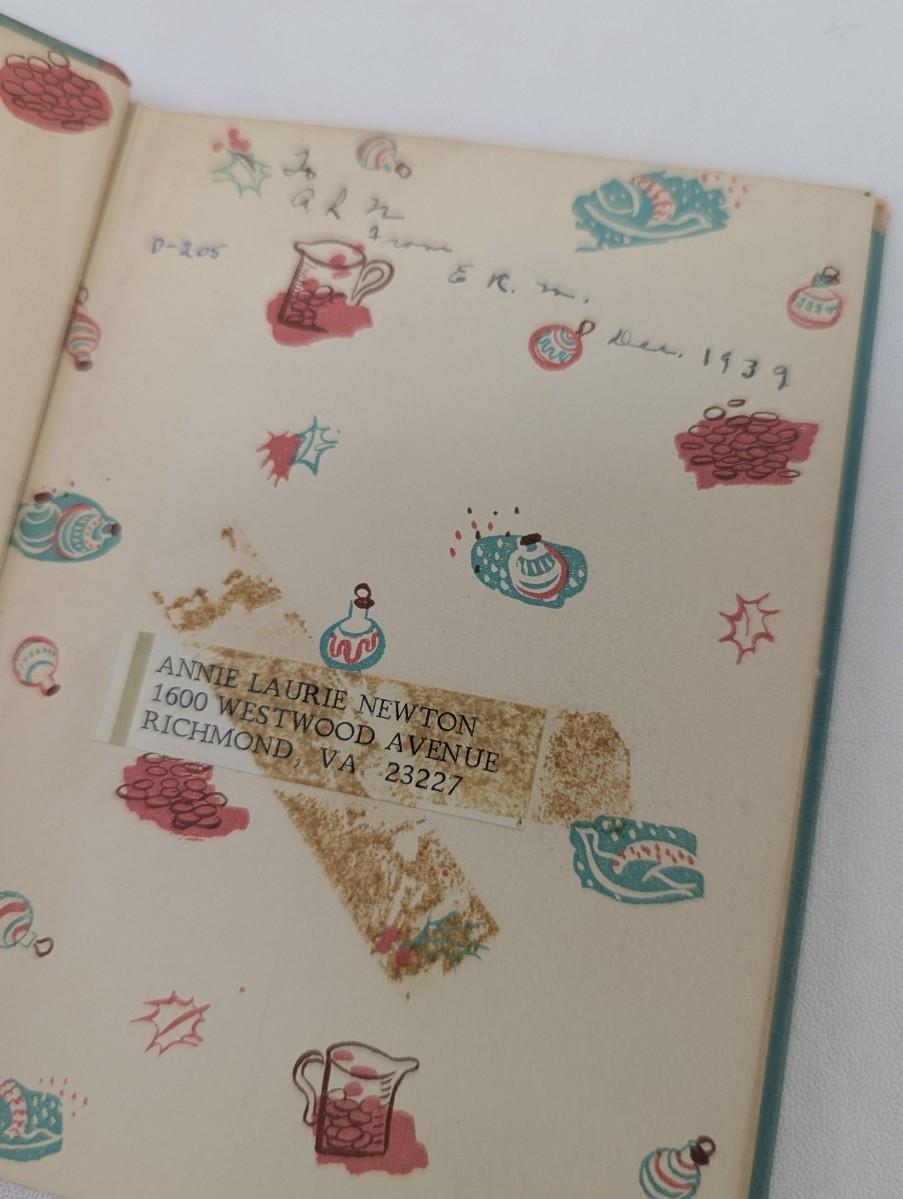 To
A L N
From
D-205
E K. M.
Dec. 1939
ANNIE LAURIE NEWTON
1600 WESTWOOD AVENUE
RICHMOND, VA. 23227